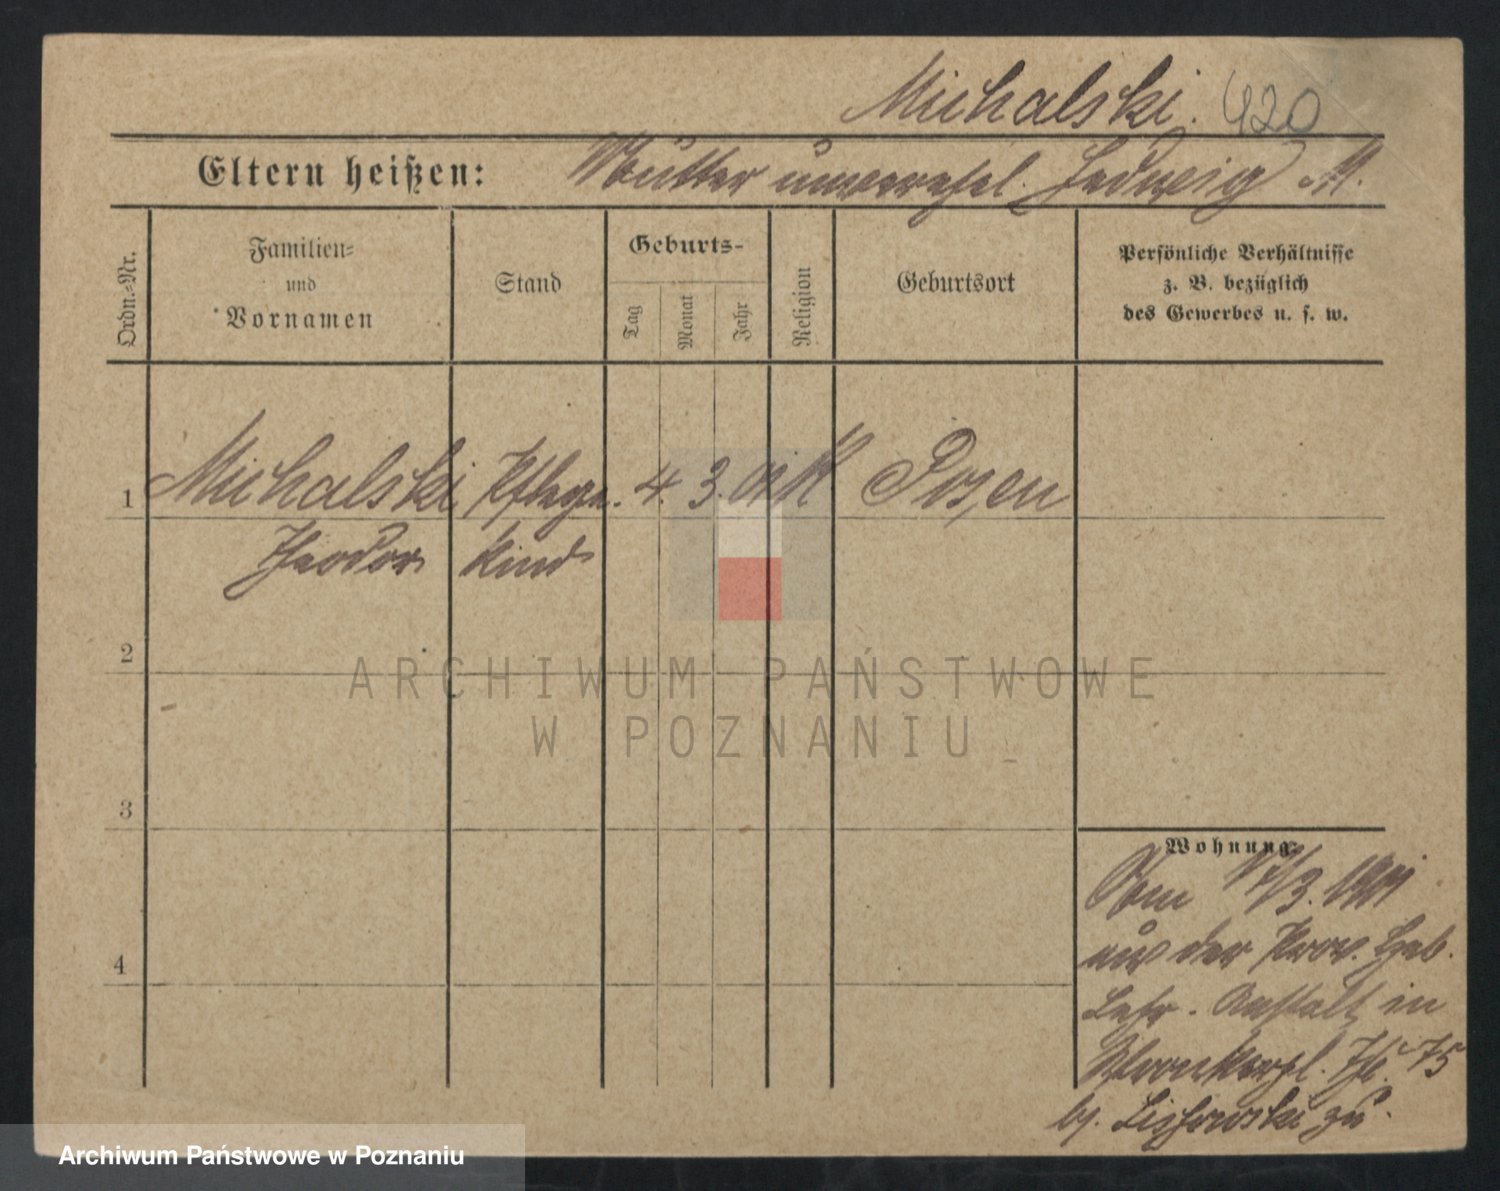 Michalski. 420
Eltern heißen: Mutter unverehel. Hedwig M.
Ordn.-Nr.
Familien-
und
Vornamen
Stand
Geburts-
Tag
Monat
Jahr
Religion
Geburtsort
Persönliche Verhältnisse
z. B. bezüglich
des Gewerbes u. s. w.
1 Michalski Pflege- 4. 3. 01 K Posen
Theodor kind
2
3
4
Wohnung:
Vom 17/3. 1901
aus der Prov. Heb.
Lehr. Anstalt in
75
bj. zu.
ARCHIWUM PAŃSTWOWE
W POZNANIU
Archiwum Państwowe w Poznaniu